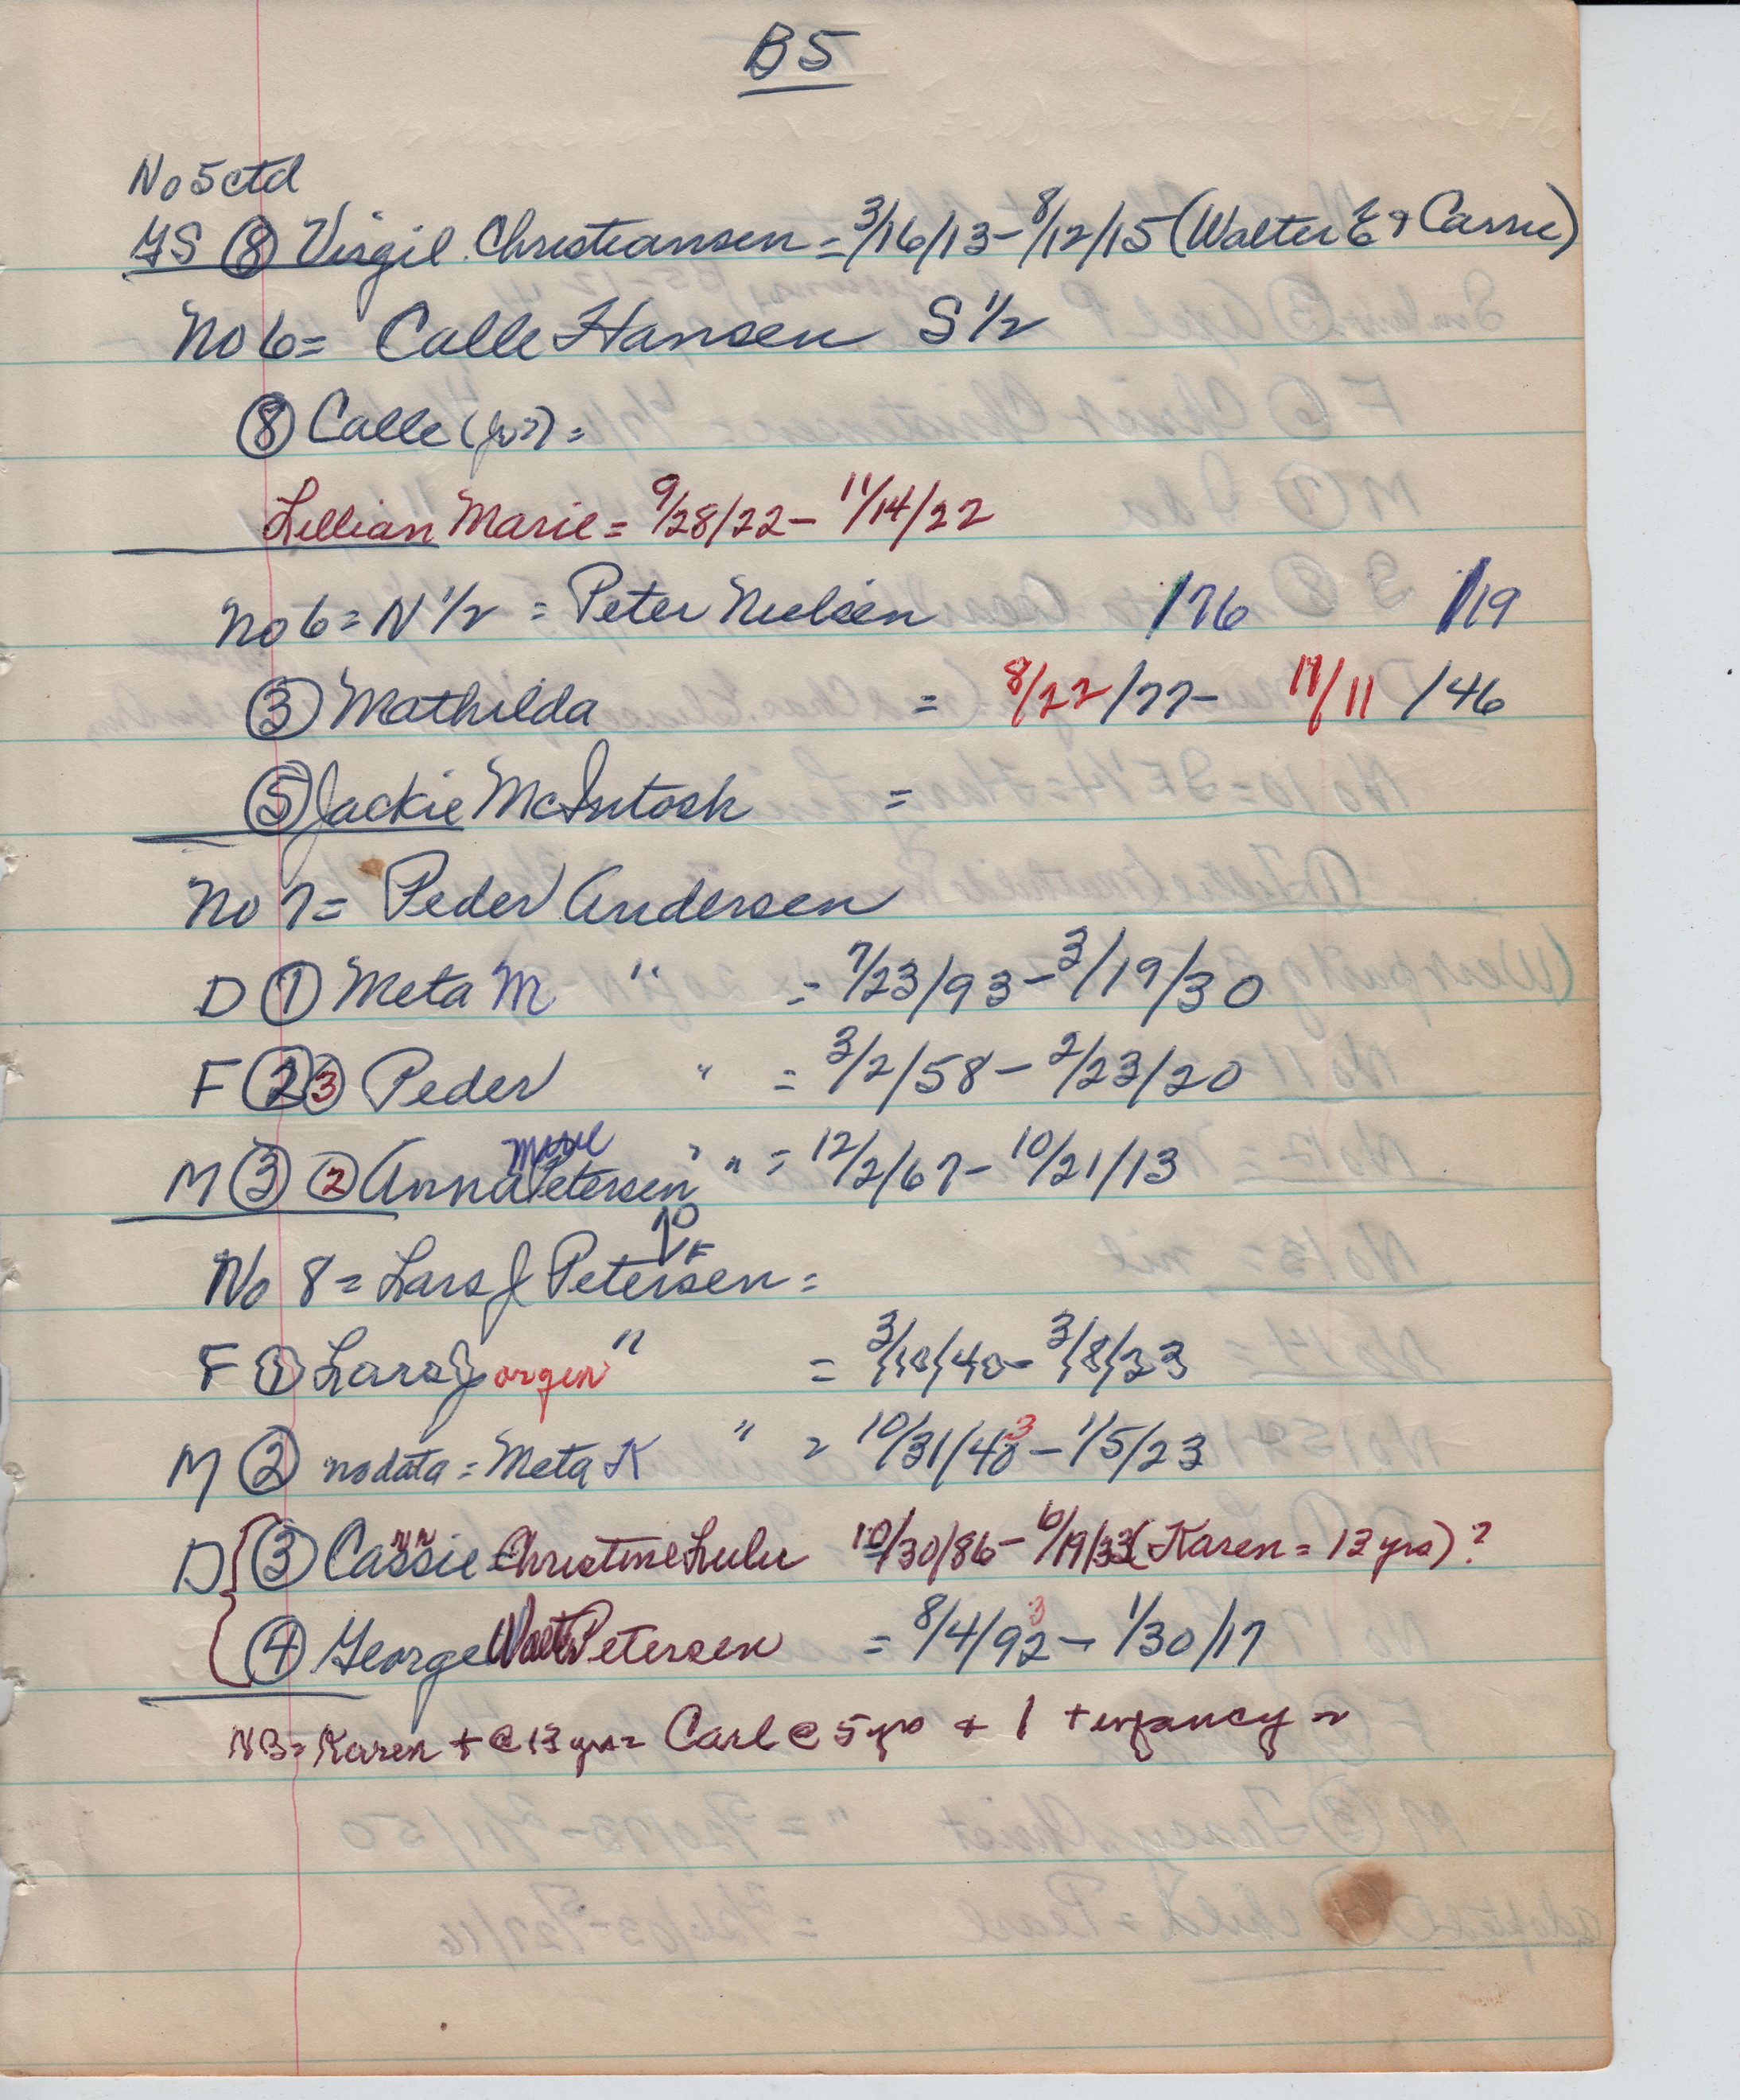 B5
No 5 ctd
GS ⑧ Virgil Christiansen = 3/16/13 - 8/12/15 (Walter E & Carrie)
No 6 = Calle Hansen S 1/2
⑧ Calle (
Lillian Marie = 9/28/22 - 11/14/22
No 6 = N 1/2 = Peter Nielsen /76 /19
③ Mathilda = 8/22/77 - 11/11/46
⑤ Jackie McIntosh =
No 7 = Peder Andersen
D ① Meta M " = 7/23/93 - 3/19/30
F ② ③ Peder " = 3/2/58 - 2/23/20
M ③ ② Anna Marie Petersen " " = 12/2/67 - 10/21/13
No 8 = Lars J Petersen =
F ① Lars Jorgen " = 3/10/40 - 3/8/23
M ② no data = Meta K " = 10/31/43 - 1/5/23
D ③ Carrie Christine Lulu 10/30/86 - 6/19/33 (Karen = 13 yrs) ?
④ George Petersen = 8/4/92 3 - 1/30/17
NB = Karen + @ 13 yrs = Carl @ 5 yrs + 1 + infancy =